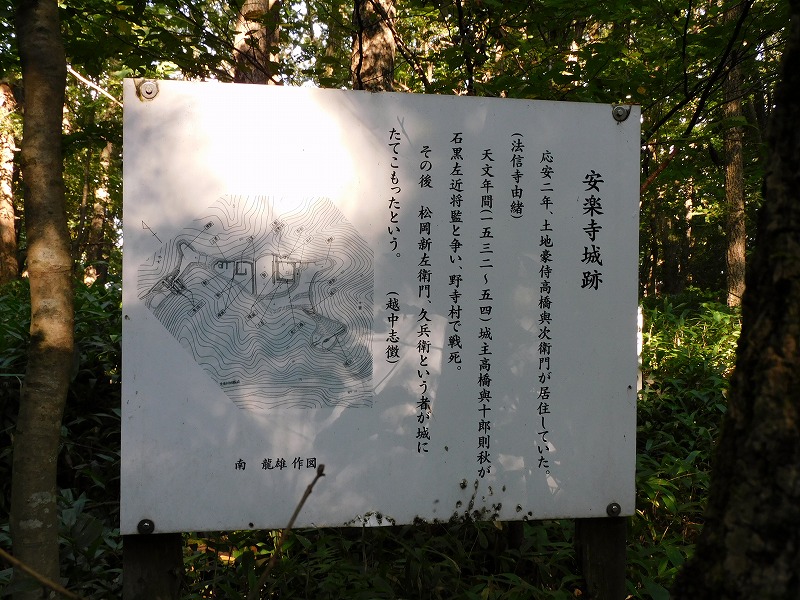 安楽寺城跡
応安二年、土地豪侍高橋與次衛門が居住していた。
(法信寺由緒)
天文年間(一五三二～五四)城主高橋與十郎則秋が
石黒左近将監と争い、野寺村で戦死。
その後 松岡新左衛門、久兵衛という者が城に
たてこもったという。 (越中志徴)
南 龍雄 作図